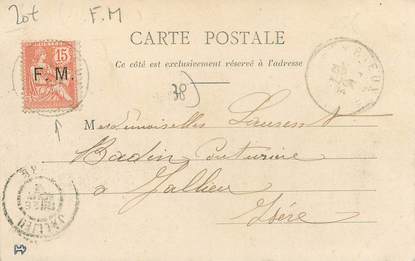 20t F.M
15
F. M.
CARTE POSTALE
Ce côté est exclusivement réservé à l'adresse
38
Mesdemoiselles Laurent
Badin Couturière
à Jallieu
Isère
JALLIEU